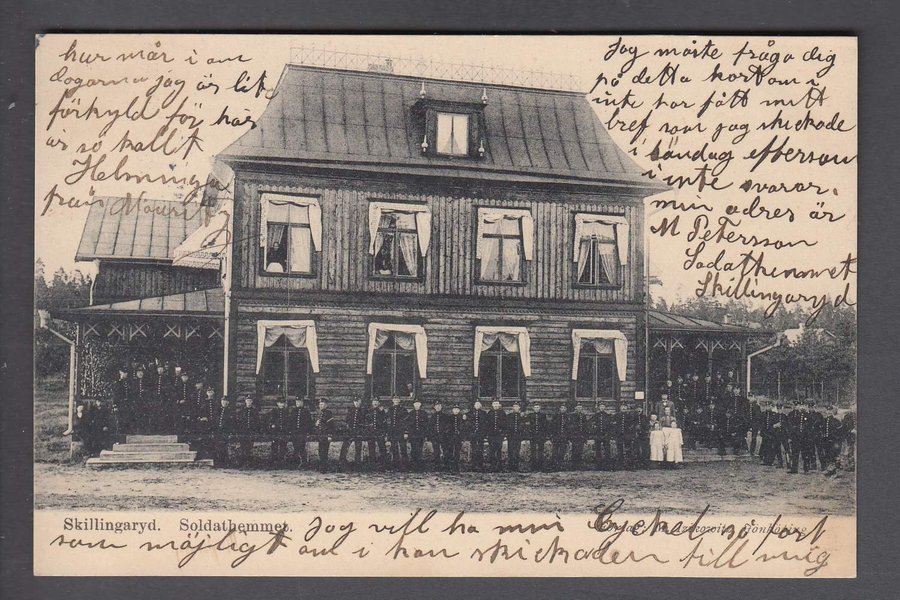 hur mår i om
dogarna jag är lit
förkyld för här
är so kallit
Helninga
från Maurit
Jag måste fråga dig
på detta kort om i
inte har fått mitt
bref som jag skickade
i söndag efterson
i inte svarar.
min adres är
M Petersson
Sodathemmet
Skillingaryd
Skillingaryd. Soldathemmet.
Jag vill ha min Cyckel so fort
som möjligt om i kan skickaden till mig